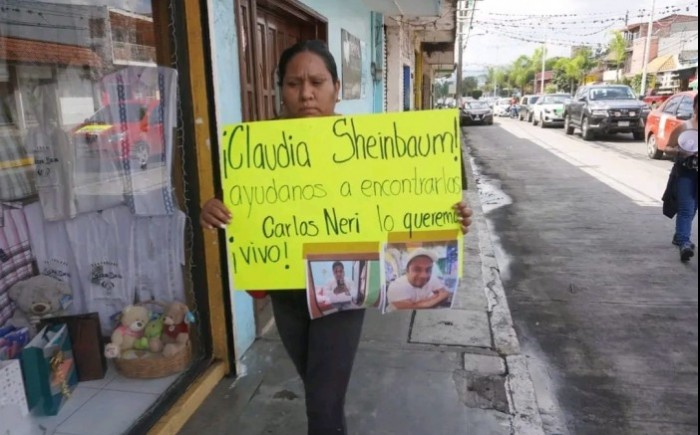 ¡Claudia Sheinbaum!
ayudanos a encontrarlos
Carlos Neri lo queremo
¡vivo!